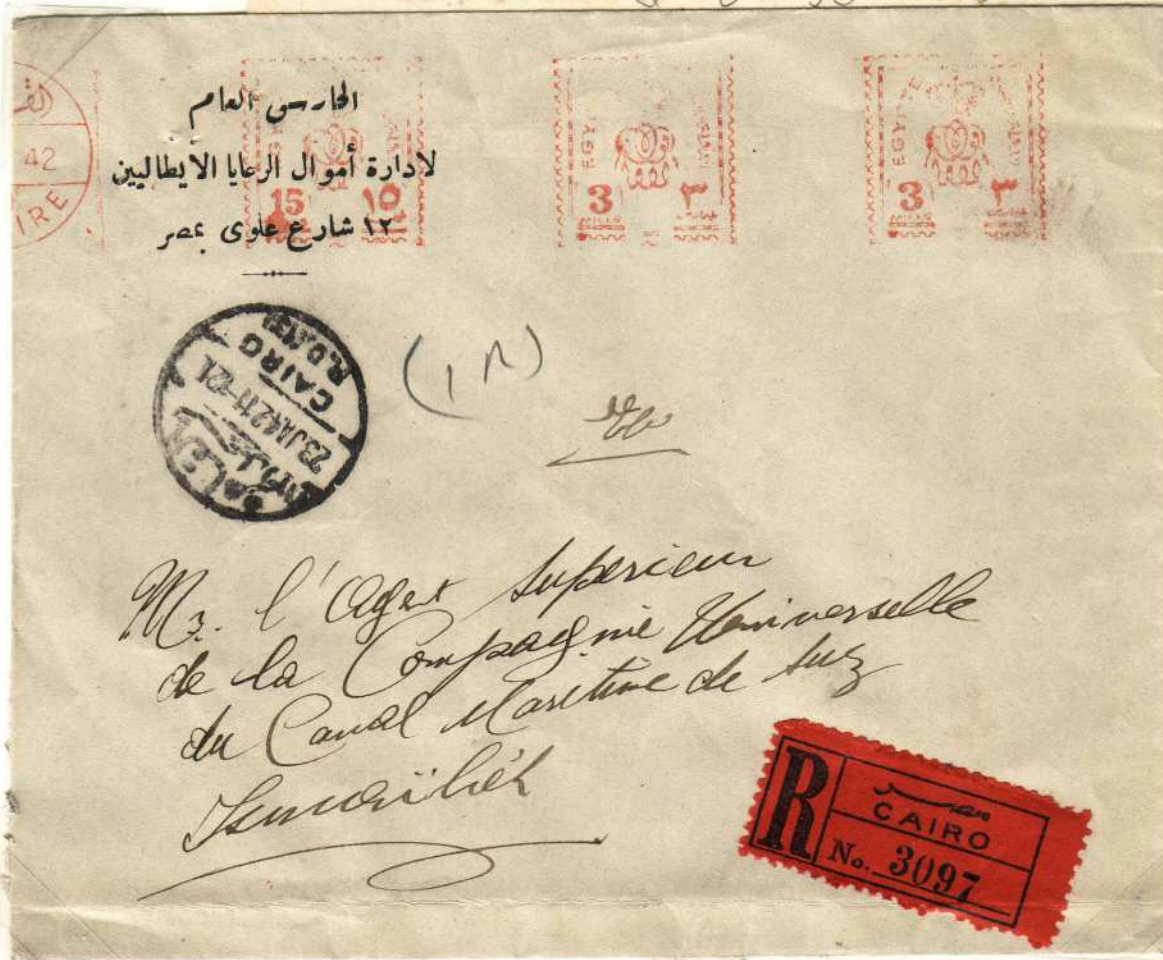 42
IRE
الحارس العام
لادارة أموال الرعايا الايطاليين
١٢ شارع علوى بمصر
EGY
15 ١٥
EGY
3 ٣
MILLS
EGY
3 ٣
MILLS
CAIRO
23 JA 42 11-12
(1R)
Mr. l'Agent Superieur
de la Compagnie Universelle
du Canal Maritime de Suez
Ismaïlieh
R
مصر
CAIRO
No. 3097